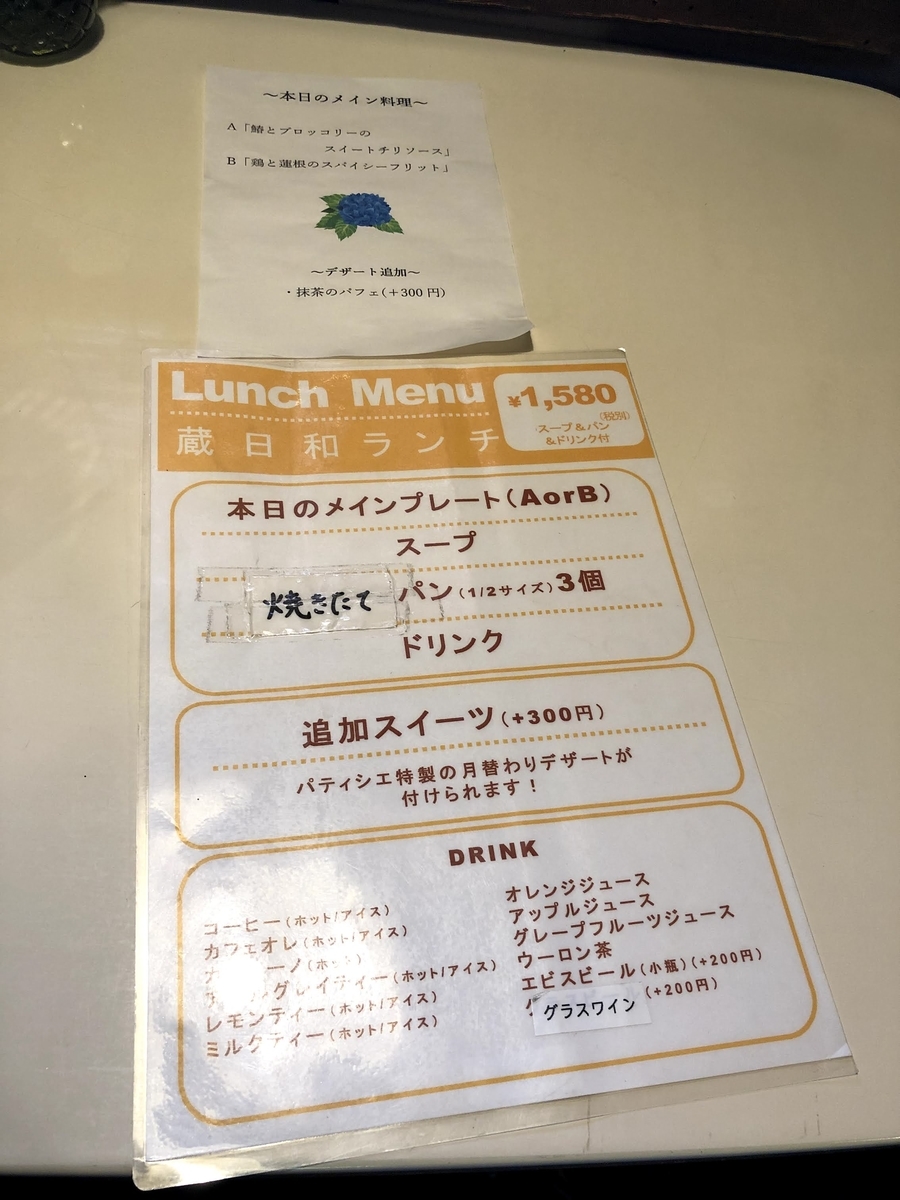 ～本日のメイン料理～
A「鰆とブロッコリーの
スイートチリソース」
B「鶏と蓮根のスパイシーフリット」
～デザート追加～
・抹茶のパフェ(＋300円)
Lunch Menu
蔵日和ランチ
¥1,580
(税別)
スープ&パン
&ドリンク付
本日のメインプレート(AorB)
スープ
焼きたて パン(1/2サイズ)3個
ドリンク
追加スイーツ(+300円)
パティシエ特製の月替わりデザートが
付けられます！
DRINK
コーヒー(ホット/アイス)
カフェオレ(ホット/アイス)
(ホット)
グレイティー(ホット/アイス)
レモンティー(ホット/アイス)
ミルクティー(ホット/アイス)
オレンジジュース
アップルジュース
グレープフルーツジュース
ウーロン茶
エビスビール(小瓶)(+200円)
グラスワイン (+200円)